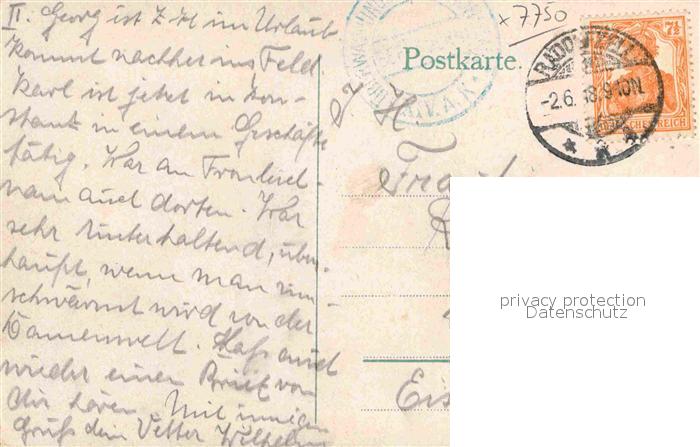 II. Georg ist z. Zt. im Urlaub
kommt nachher ins Feld.
Karl ist jetzt in Kon-
stanz in einem Geschäfte
tätig. War an Fronleich-
nam auch dorten. War
sehr unterhaltend, über-
haupt, wenn man um-
schwärmt wird von der
Damenwelt. Lass auch
wieder einen Brief von
dir hören. Mit innigem
Gruß dein Vetter Wilhelm
x 7750
Postkarte.
7½
-2.6.18. 9-10N.
REICH
privacy protection
Datenschutz